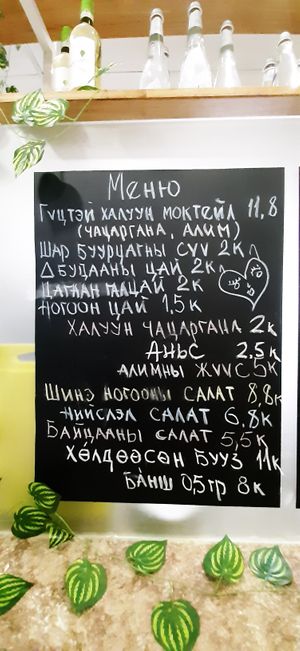 Меню
Гуцтэй халуун моктейл 11,8
(чацаргана, алим)
Шар буурцагны сүү 2к
Δ будааны цай 2к
Цагаан гаа цай 2к
Ногоон цай 1,5к
Халуун чацаргана 2к
Аньс 2.5к
Алимны жүүс 5к
Шинэ ногооны салат 8,8к
Нийслэл салат 6,8к
Байцааны салат 5,5к
Хөлдөөсөн бууз 11к
Банш 0,5гр 8к